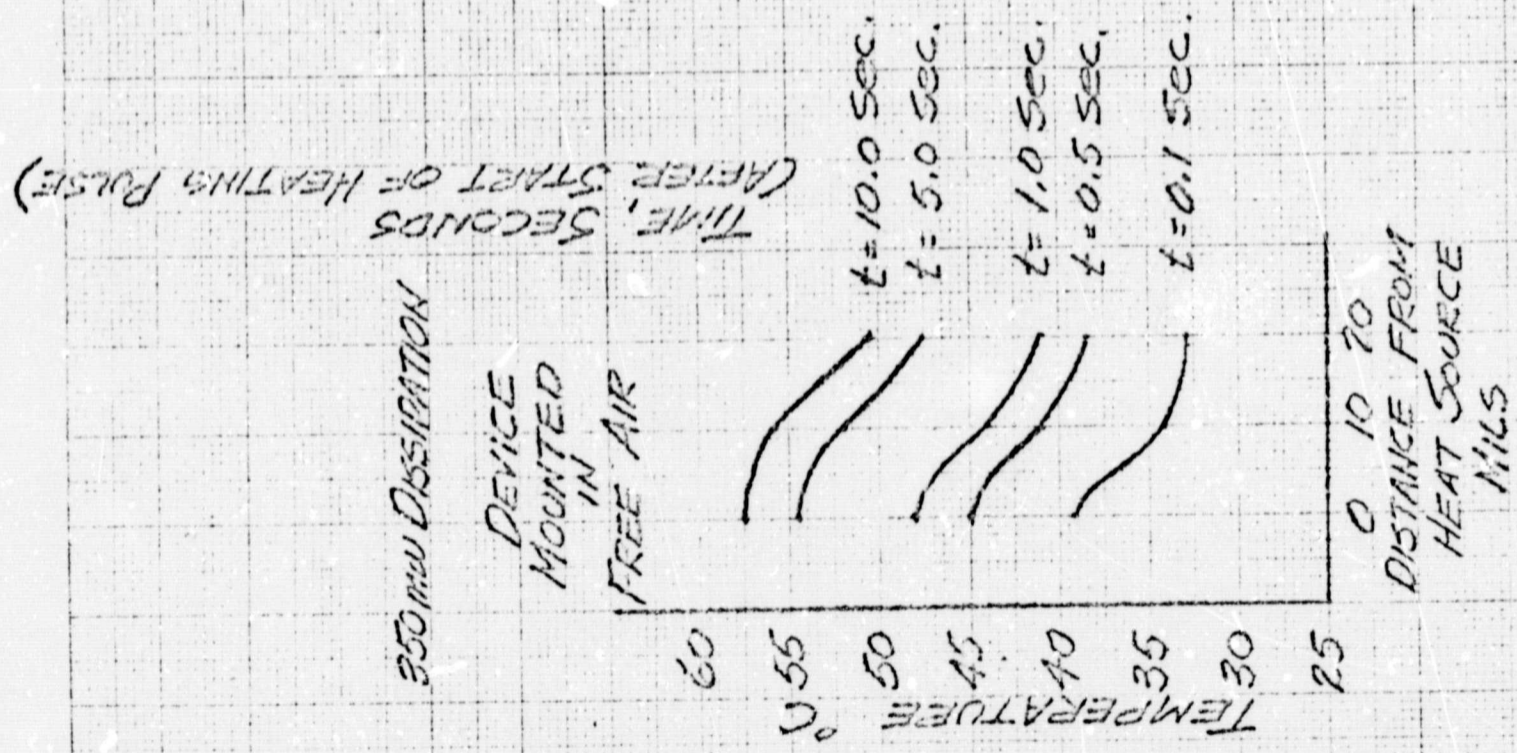 350 mw DISSIPATION
DEVICE
MOUNTED
IN
FREE AIR
TIME, SECONDS
(AFTER START OF HEATING PULSE)
t=10.0 Sec.
t=5.0 Sec.
t=1.0 Sec.
t=0.5 Sec.
t=0.1 Sec.
TEMPERATURE °C
60
55
50
45
40
35
30
25
0 10 20
DISTANCE FROM
HEAT SOURCE
MILS